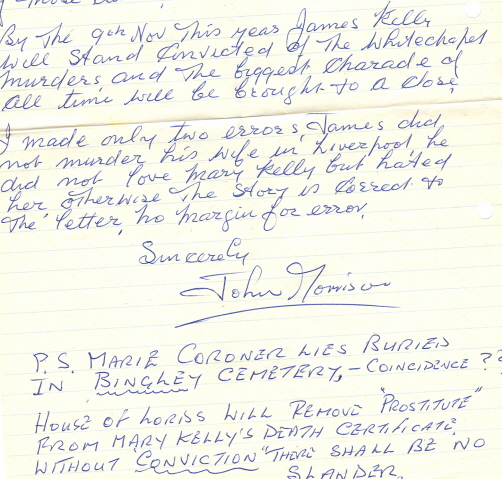 By The 9th Nov This year James Kelly
will Stand Convicted of The Whitechapel
murders, and The biggest Charade of
all time will be brought to a close.
I made only two errors, James did
not murder his wife in Liverpool, he
did not love Mary Kelly but hated
her otherwise The Story is Correct to
The letter, no margin for error.
Sincerely
John Morrison
P.S. MARIE CORONER LIES BURIED
IN BINGLEY CEMETERY, - COINCIDENCE ??
HOUSE OF LORDS WILL REMOVE "PROSTITUTE"
FROM MARY KELLY'S DEATH CERTIFICATE
WITHOUT CONVICTION "THERE SHALL BE NO
SLANDER.